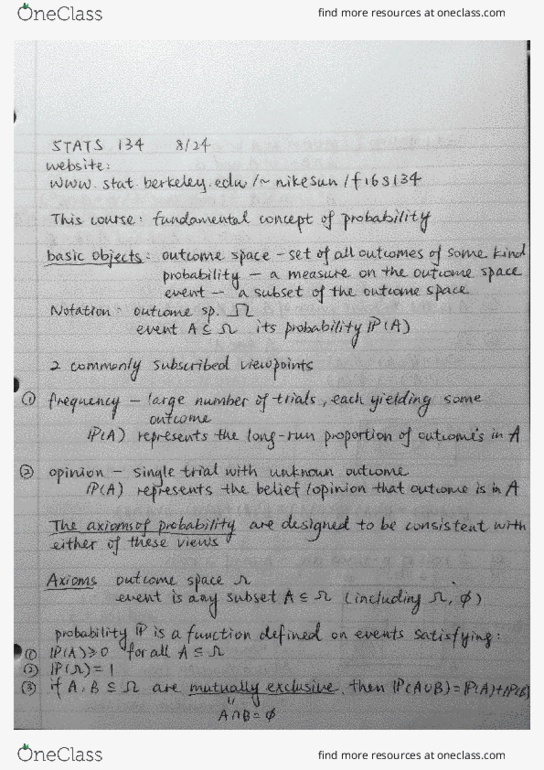 OneClass find more resources at oneclass.com
STATS 134 8/24
website:
www.stat.berkeley.edu/~nikesun/f16s134
This course: fundamental concept of probability
basic objects: outcome space - set of all outcomes of some kind
probability - a measure on the outcome space
event - a subset of the outcome space
Notation: outcome sp. Ω
event A ⊆ Ω its probability ℙ(A)
2 commonly subscribed viewpoints
① frequency - large number of trials, each yielding some
outcome
ℙ(A) represents the long-run proportion of outcomes in A
② opinion - single trial with unknown outcome
ℙ(A) represents the belief/opinion that outcome is in A
The axioms of probability are designed to be consistent with
either of these views
Axioms outcome space Ω
event is any subset A ⊆ Ω (including Ω, ∅)
probability ℙ is a function defined on events satisfying:
① ℙ(A)≥0 for all A ⊆ Ω
② ℙ(Ω)=1
③ if A, B ⊆ Ω are mutually exclusive, then ℙ(A∪B)=ℙ(A)+ℙ(B)
A∩B=∅
OneClass find more resources at oneclass.com